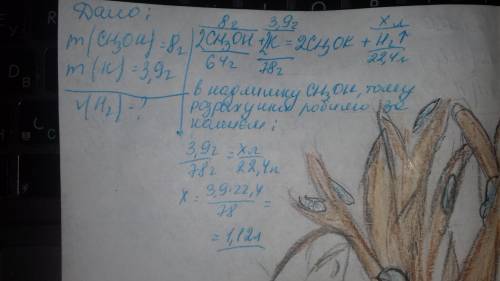 Дано:
m(CH3OH)=8г
m(K)=3,9г
V(H2)=?
8г 3,9г xл
2CH3OH + 2K = 2CH3OK + H2↑
64г 78г 22,4л
в надлишку CH3OH, тому
розрахунки робимо за
калієм:
3,9г/78г = xл/22,4л
x = 3,9·22,4/78 =
= 1,12л